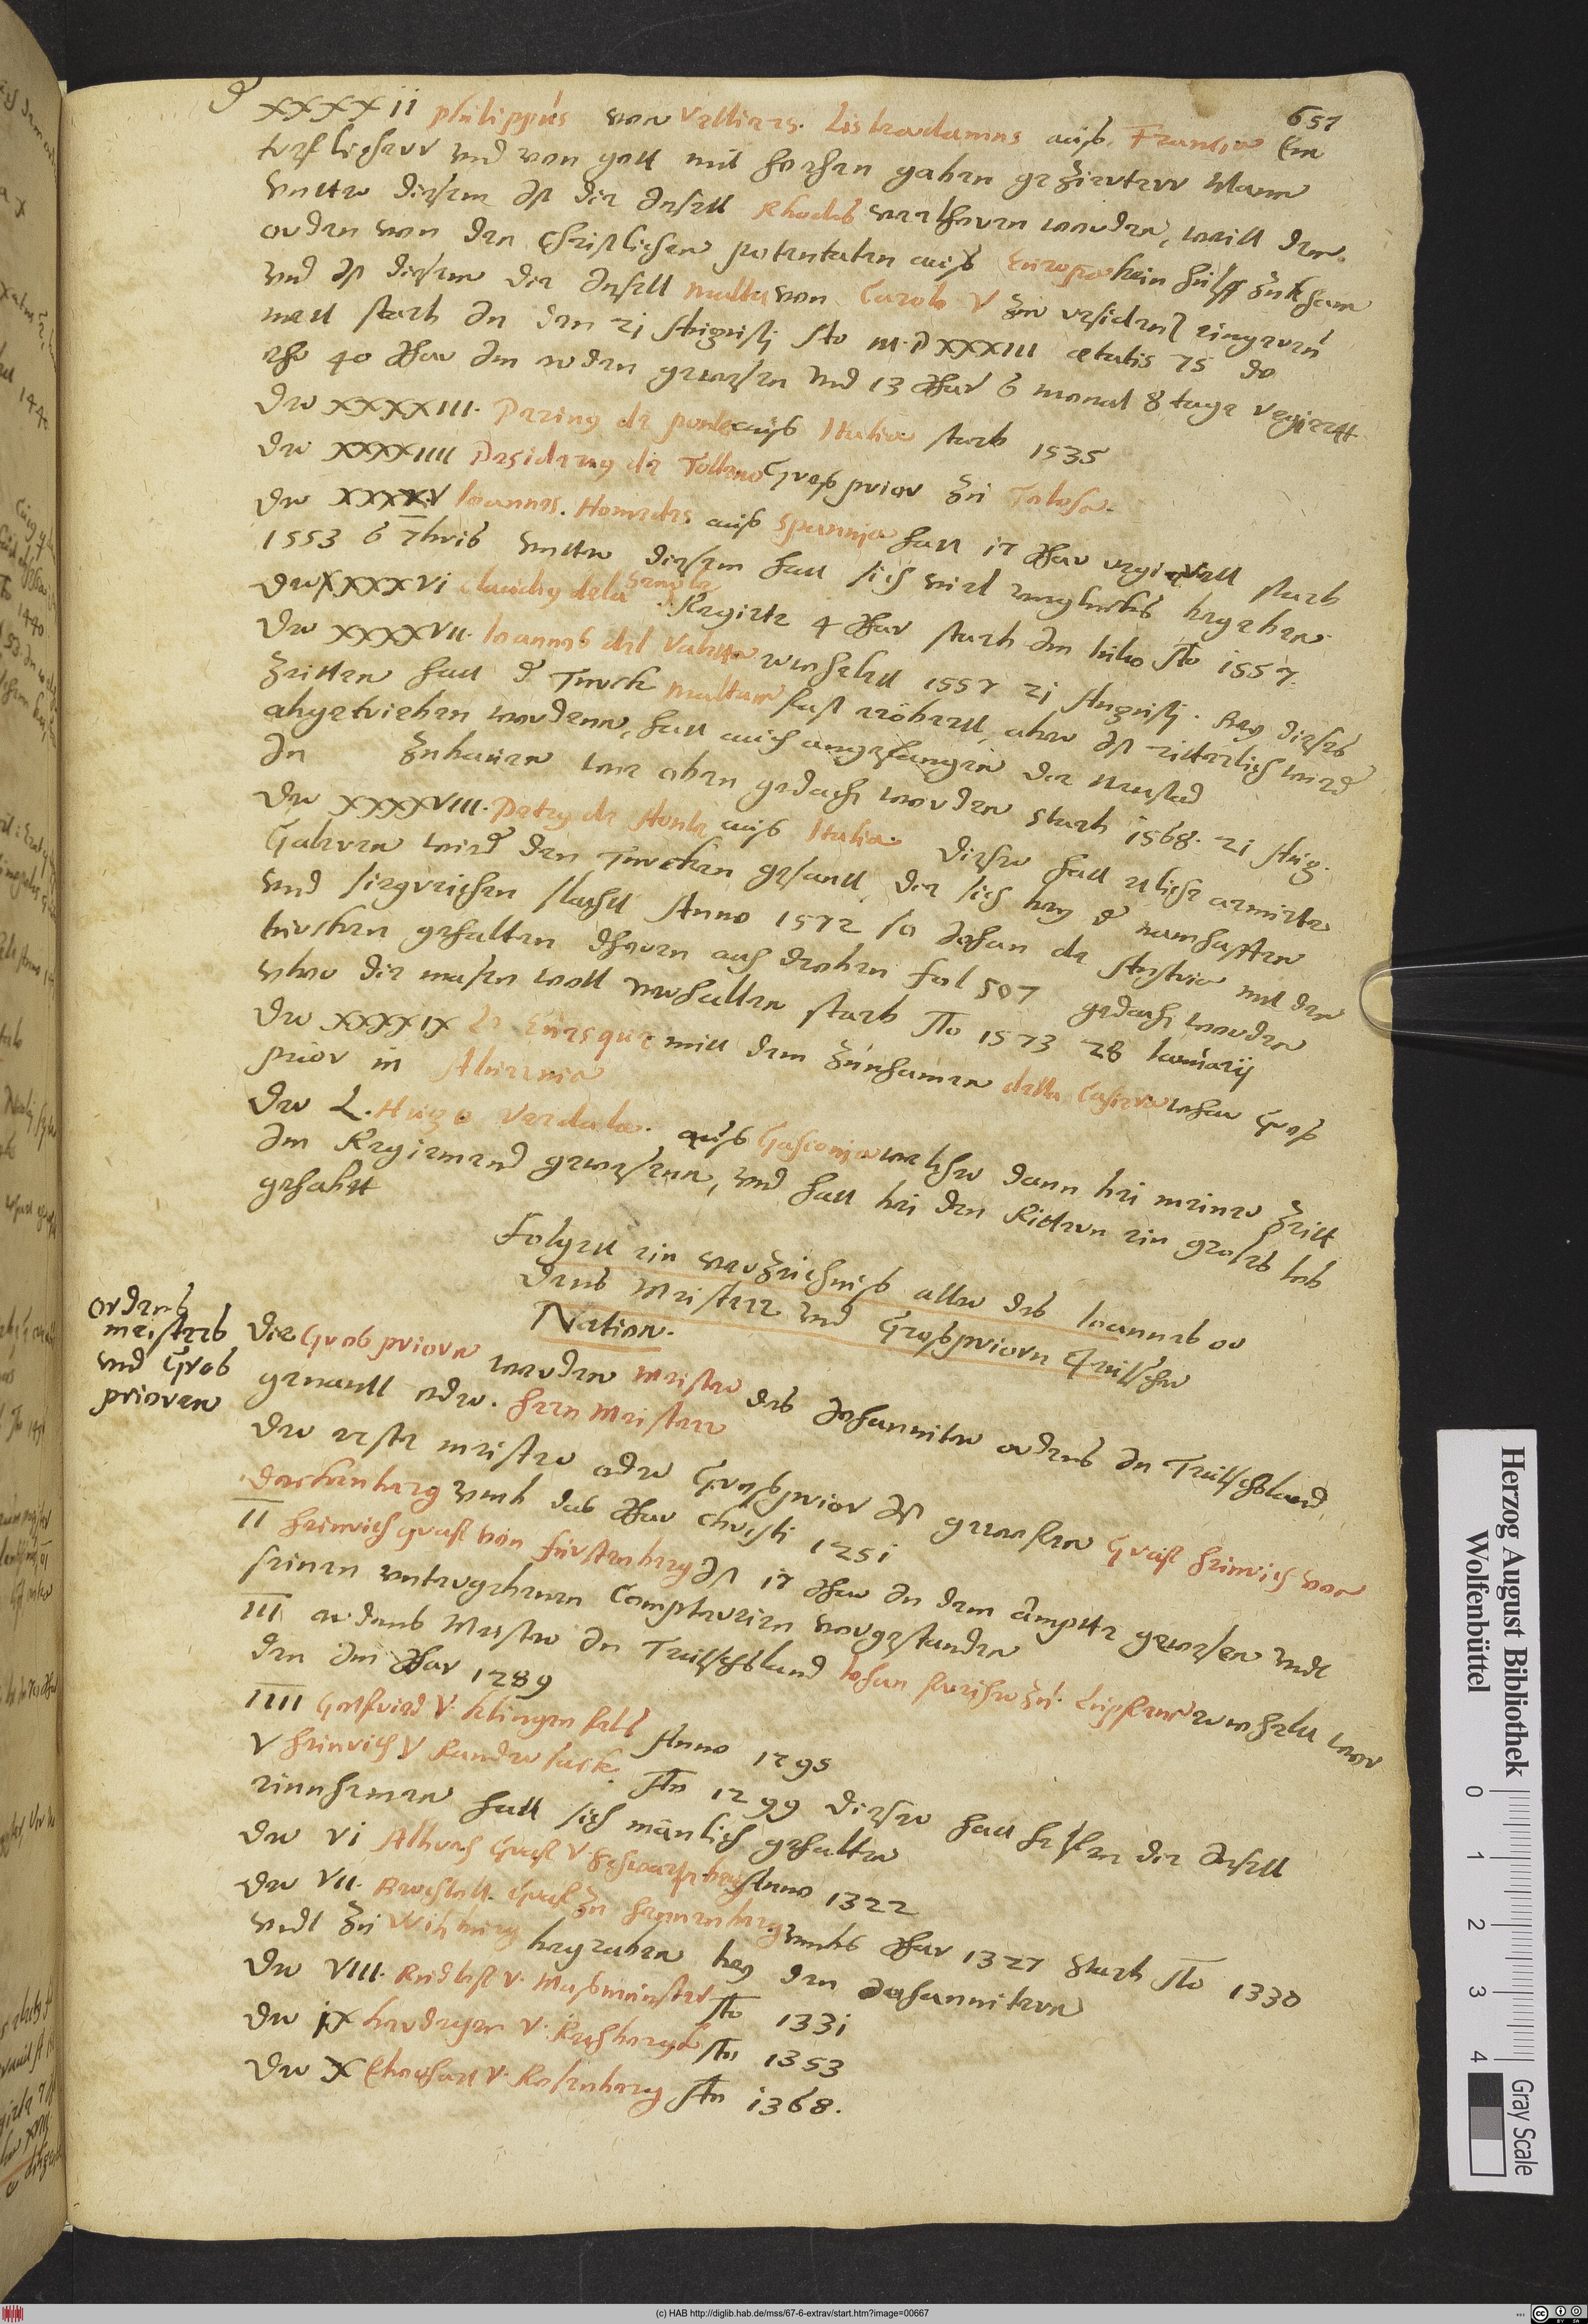 657
d XXXXii philippus von Vellires. Lisleadamus auß. Francia Ein
trefliecherr vnd von gott mit hochen gaben geziertter Mann
Vntter diesem Ist die Insell Rhodis verlhoren worden, weill dem
orden von den Christlichen potentaten auß Europa kein hülff zukham
vnd Ist diesem die Insell Malta von Carolo V zur residenz eingereu
mett starb In den 21 Augusti Ao M.D XXXIII ætatis 75 do
ehr 40 Jhar Im orden gewesen vnd 13 Jhar 6 monat 8 tage regiertt
Der XXXXIII. Perinus de ponte auß Italia starb 1535
Der XXXXIIII Desiderius de Tolleno Groß prior zu Tolosa.
Der XXXXV Ioannes. Homedes auß Spannia hatt 17 Jhar regierett starb
1553 6 7bris vntter diesem hatt sich viel vnglucks begeben
Der XXXXVI Claudius dela Sengle. Regirte 4 Jhar starb Im Iulio Ao 1557.
Der XXXXVII. Ioannes del Valetta erwehlett 1557 21 Augusti. Bey dieses
Zeitten hatt d Turck Maltam fast eröbertt, aber Ist ritterlich wied
abgetrieben wordenn, hatt auch angefangen die Neustad
In zubauen wie oben gedacht worden starb 1568. 21 Aug.
Der XXXXVIII. Petrus de Monte auß Italia. Dieser hatt etliche armirte
Galeren wied den Turcken gesantt, die sich bey d namhafften
vnd siegreichen slacht Anno 1572 so Johan de Austria mit den
turcken gehalten dheren auch droben fol 507 gedacht worden
vber die masen woll verhalten starb Ao 1573 28 Ianuarij
Der XXXXIX L' Euesque mitt dem Zunhamen della Casiera whar Groß
prior in Aluernia
Der L. Hugo Verdala. auß Gasconia welcher dann bei meiner Zeitt
Im Regiement gewesenn, vnd hatt bei den Rittern ein groses lob
gehabtt
Folgett ein verzeichniß aller des Ioannes or
dens Meisterr vnd Großpriorn Teutscher
Nation.
ordens
meisters
vnd Gros
prioren
Die Gros priorn werden Meister des Johanniter ordens In Teutschland,
genantt oder. Hern Meisterr
Der erste meister oder Großprior Ist gewesen Graff Heinrich von
Dockenburg vmb das Jhar Christi 1251
II Heinrich graff von Fürstenberg Ist 17 Jhar In dem ampte gewesen vnd
seinen vntergebenen Compterien vorgestanden
III ordens Meister In Teutschland Iohan freiher zu. Lupffenn erwehlett wor
den Im Jhar 1289
IIII Gotfried V. Klingenfels Anno 1295
V Heinrich V Kunder sack. Ao 1299 dieser hatt helffen die Insell
einnhemen hatt sich mänlich gehalten
Der VI Albrech Graff V. Schwarzburg Anno 1322
Der VII. Berchtoltt. Graff Zu Hennenberg vmbs Jhar 1327 Starb Ao 1330
vndt zu Wirzburg begraben bey den Johannitern
Der VIII. Rudloff V. Maßmünster Ao 1331
Der IX herdegen V. Rechbergk Ao 1353
Der X Eberhart V. Rosenberg Ao 1368.
Herzog August Bibliothek
Wolfenbüttel
0 1 2 3 4
Gray Scale
(c) HAB http://diglib.hab.de/mss/67-6-extrav/start.htm?image=00667